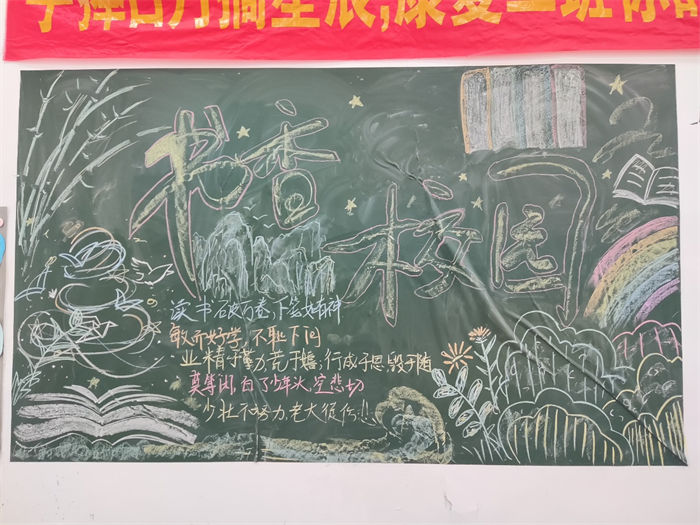 日月摘星辰,康复二班你
书香校园
读书破万卷,下笔如有神
敏而好学,不耻下问
业精于勤,荒于嬉,行成于思毁于随
莫等闲,白了少年头,空悲切
少壮不努力老大徒伤!!